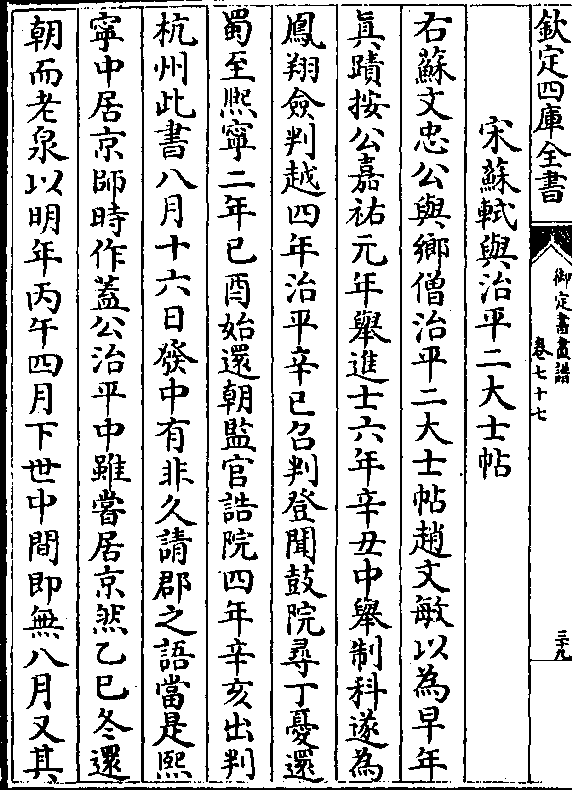 欽定四庫全書
御定書畫譜
卷七十七
三十九
宋蘇軾與治平二大士帖
右蘇文忠公與鄉僧治平二大士帖趙文敏以為早年
真蹟按公嘉祐元年舉進士六年辛丑中舉制科遂為
鳳翔僉判越四年治平辛巳召判登聞鼓院尋丁憂還
蜀至熈寧二年已酉始還朝監官誥院四年辛亥出判
杭州此書八月十六日發中有非久請郡之語當是熈
寧中居京師時作葢公治平中雖嘗居京然乙巳冬還
朝而老泉以明年丙午四月下世中間即無八月又其